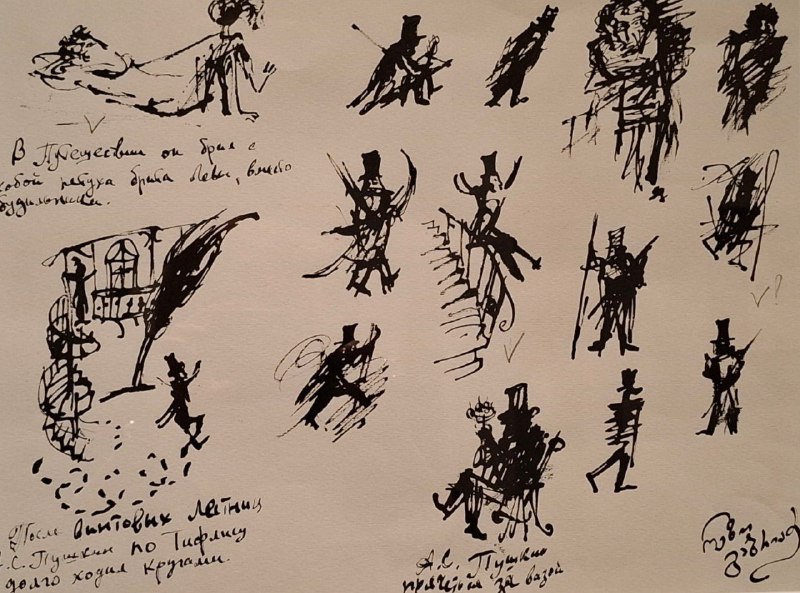 В Путешествии он брал с
собой петуха брата Левы, вместо
будильника.
После винтовых Лестниц
А.С. Пушкин по Тифлису
долго ходил кругами.
А.С. Пушкин
прячется за вазой
რეზო
გაბრიაძე